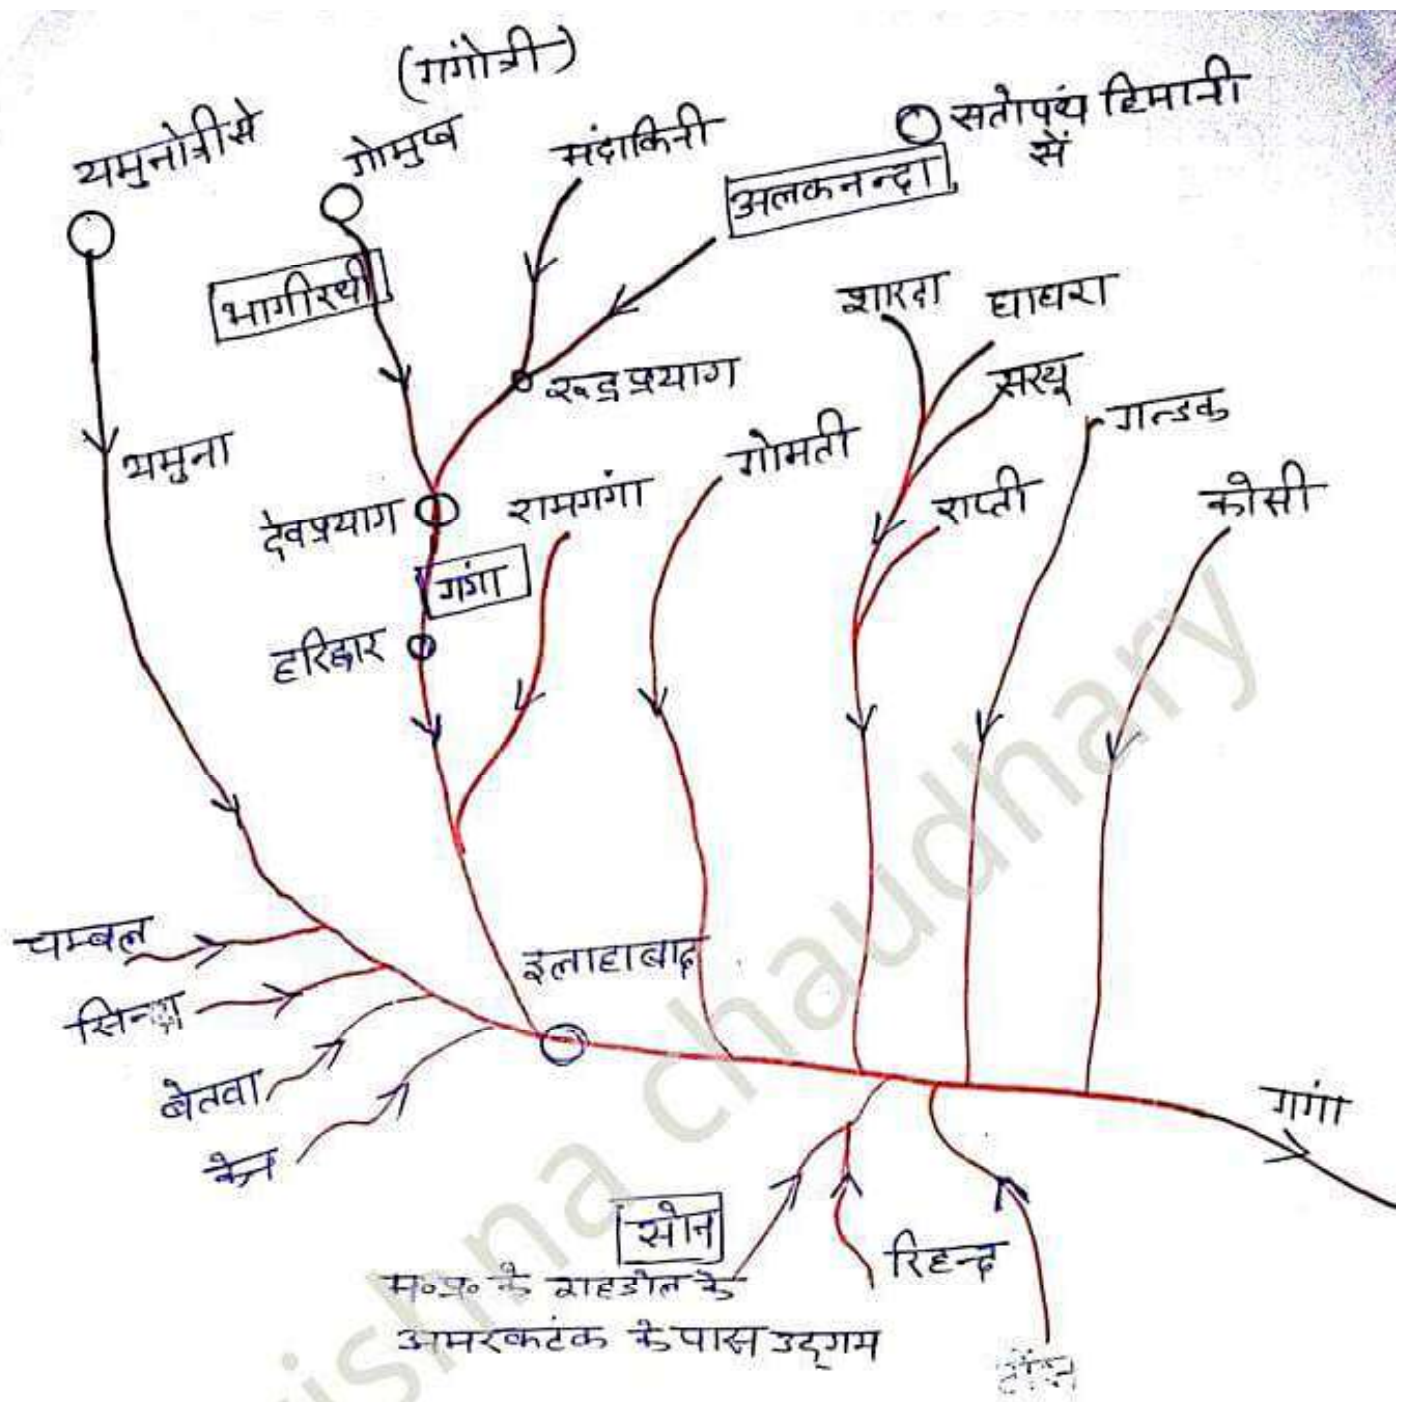 (गंगोत्री)
यमुनोत्री से
गोमुख
मंदाकिनी
सतोपथ हिमानी
से
अलकनन्दा
भागीरथी
शारदा
घाघरा
रूद्रप्रयाग
सरयू
गन्डक
यमुना
गोमती
देवप्रयाग
रामगंगा
राप्ती
कोसी
गंगा
हरिद्वार
चम्बल
इलाहाबाद
सिन्ध
बेतवा
केन
गंगा
सोन
रिहन्द
म०प्र० के शहडोल के
अमरकटंक के पास उद्गम
ishna chaudhary